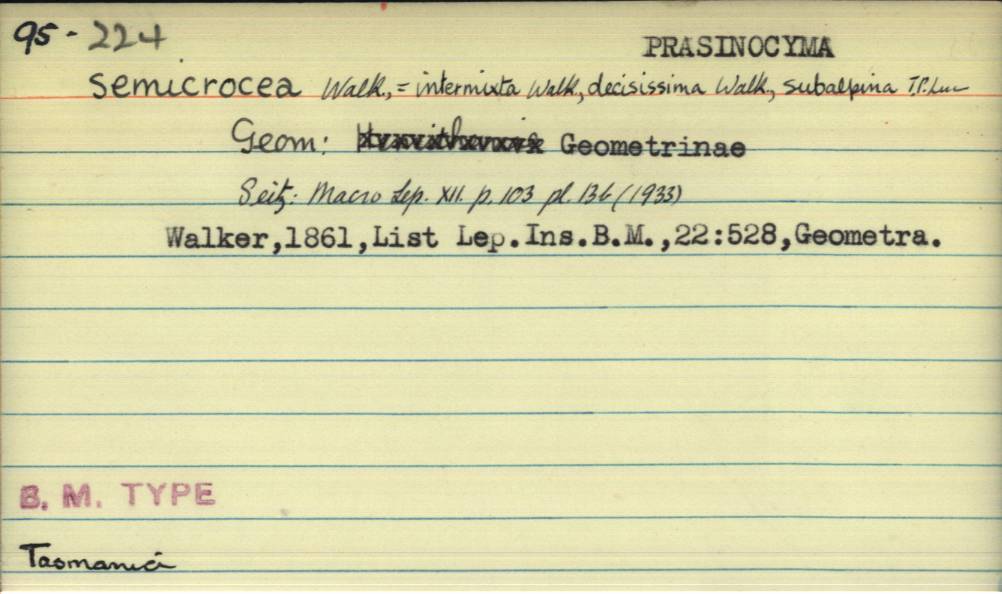 95-224
PRASINOCYMA
semicrocea Walk., = intermixta Walk, decisissima Walk., subalpina T.P. Luc
Geom: Geometrinae
Seitz: Macro Lep. XII. p. 103 pl. 13b (1933)
Walker,1861,List Lep.Ins.B.M.,22:528,Geometra.
B. M. TYPE
Tasmania